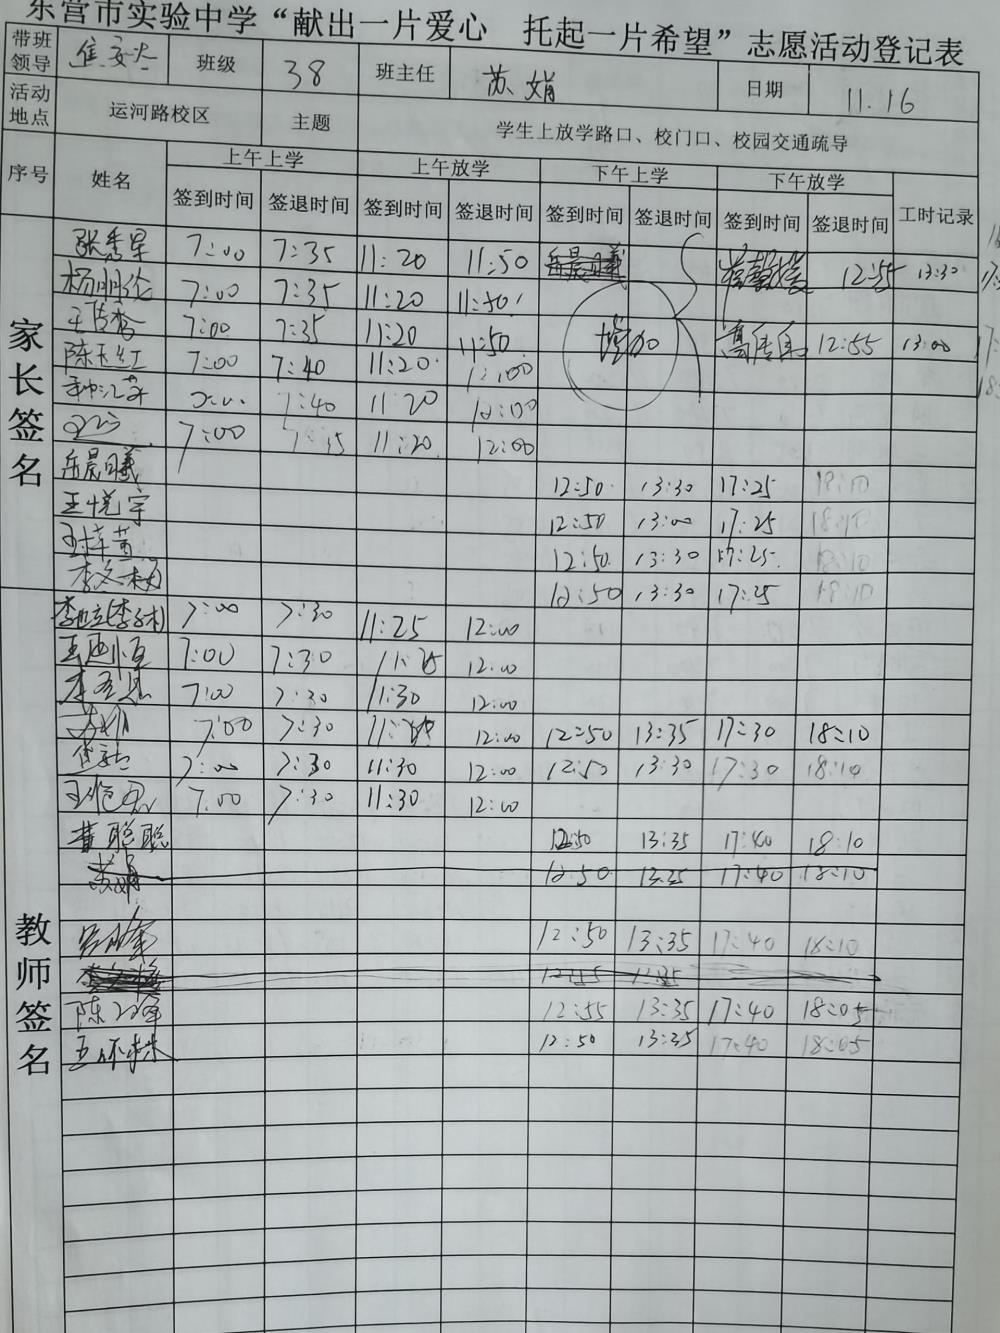 东营市实验中学“献出一片爱心 托起一片希望”志愿活动登记表
带班领导 班级 38 班主任 苏娟 日期 11.16
活动地点 运河路校区 主题 学生上放学路口、校门口、校园交通疏导
序号 姓名 上午上学 上午放学 下午上学 下午放学 工时记录
签到时间 签退时间 签到时间 签退时间 签到时间 签退时间 签到时间 签退时间
家长签名
张秀星 7:00 7:35 11:20 11:50 岳晨曦 12:55 13:30
杨明伦 7:00 7:35 11:20 11:50
7:00 7:35 11:20 11:50 增加 12:55 13:00
陈玉红 7:00 7:40 11:20 12:00
7:40 11:20 12:00
7:00 7:35 11:20 12:00
岳晨曦 12:50 13:30 17:25 18:10
王悦宇 12:50 13:00 17:25 18:10
12:50 13:30 17:25 18:10
12:50 13:30 17:25 18:10
教师签名
7:00 7:30 11:25 12:00
7:00 7:30 11:25 12:00
7:00 7:30 11:30 12:00
7:00 7:30 12:00 12:50 13:35 17:30 18:10
7:00 7:30 11:30 12:00 12:50 13:30 17:30 18:10
7:00 7:30 11:30 12:00
董聪聪 12:50 13:35 17:40 18:10
苏娟 12:50 13:35 17:40 18:10
12:50 13:35 17:40 18:10
陈 12:55 13:35 17:40 18:05
王环株 12:50 13:35 17:40 18:05